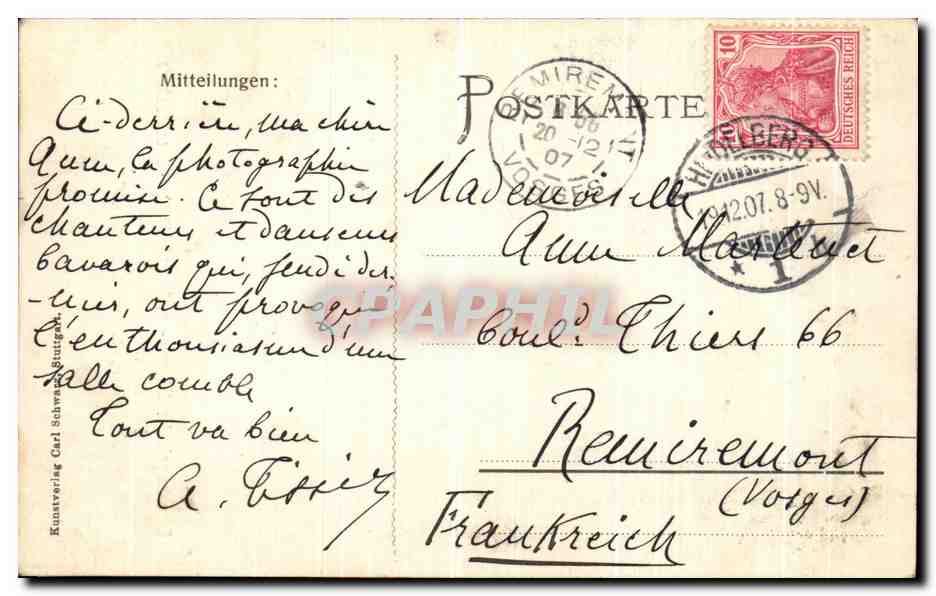 Mitteilungen:
Ci-derrière, ma chère
Anne, la photographie
promise. Ce sont des
chanteurs et danseurs
bavarois qui, jeudi der-
-nier, ont provoqué
l'enthousiasme d'une
salle comble
Tout va bien
A. Tissier
Kunstverlag Carl Schwarz, Stuttgart.
POSTKARTE
REMIREMONT
20 -12
07
VOSGES
10
DEUTSCHES REICH
HEIDELBERG
12.07. 8-9V.
* 1 *
Mademoiselle
Anne Martenet
Boul.d Thiers 66
Remiremont
(Vosges)
Frankreich
CPAPHIL